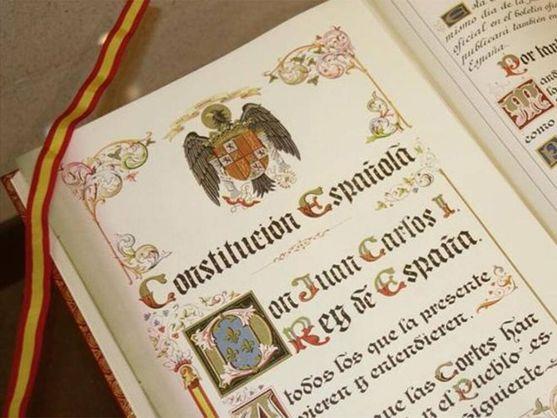 Constitución Española
Don Juan Carlos I,
Rey de España,
A todos los que la presente
vieren y entendieren.
que las Cortes han
el Pueblo es
siguiente
mismo día de la
oficial en el boletín
publicará también
España.
Por
como